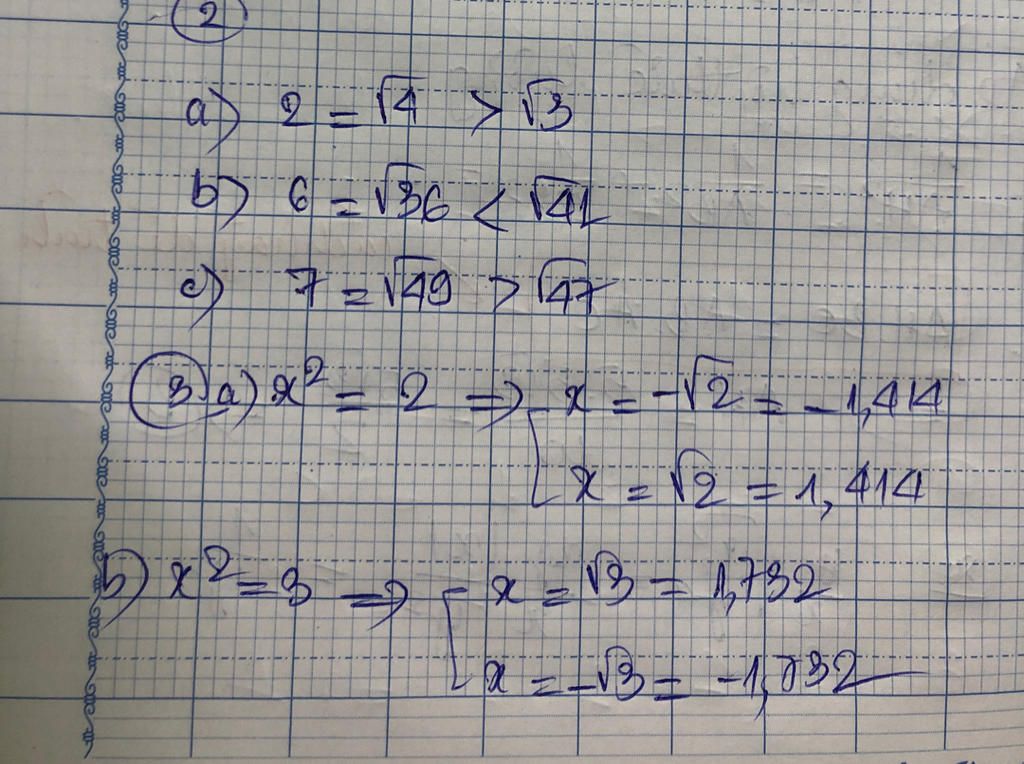 2
a) 2 = √4 > √3
b) 6 = √36 < √41
c) 7 = √49 > √47
3 a) x² = 2 => [ x = -√2 = -1,414
x = √2 = 1,414
b) x² = 3 => [ x = √3 = 1,732
x = -√3 = -1,732